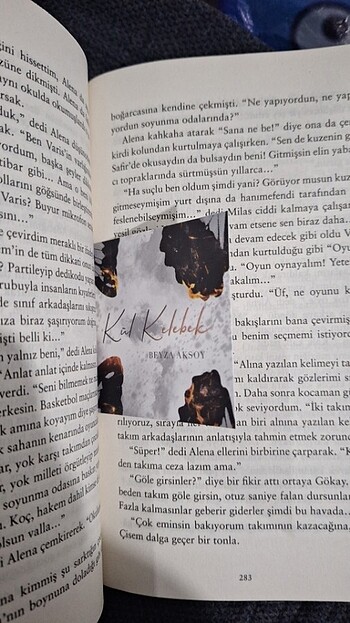 ğini hissettim, Alena da
züne dikmişti. Alena
aynı okulda okumuş
arsak.
duk," dedi Alena
"Ben Varis'in
yordum, başka şeyler
itibar gibi... Ama o
ollarını göğsünde birleş
Varis? Buyur mikrofon
..."
çevirdim meraklı bir
em'in de tüm dikkati
? Partileyip dedikodu
rubuyla insanların kıyafet
de sınıf arkadaşları
ıza biraz şaşırıyorum
işti belli ki..."
n yalnız beni," dedi
"Anlat anlat içinde kal
verdi. "Seni bilmemek
erkesin. Basketbol maç
k amına koyayım diye
sahanın kenarında oyun
ar, yok karşı takımdan
, yok milleti örgütleyip
soyunma odasına basket
Koç, hakem dahil
olsun valla..."
i Alena çemkirerek.
na kimmiş şu sarkıf
'nın boynuna doladığı
boğarcasına kendine çekmişti. "Ne yapıyordun, ne yap
yordun soyunma odalarında?"
Alena kahkaha atarak "Sana ne be!" diye ona da çe
kirdi kolundan kurtulmaya çalışırken. "Sen de kuzenin
Safir'de okusaydın da bulsaydın beni! Gitmişsin elin yaba
cı topraklarında sürtmüşsün yıllarca..."
"Ha suçlu ben oldum şimdi yani? Görüyor musun kuz
gitmeseymişim yurt dışına da hanımefendi tarafından
feslenebilseymişim..." dedi Milas ciddi kalmaya çalışar
yeşil
vam etsene sen biraz daha...
devam edecek gibi oldu V
kurtulduğu gibi "O
"Oyun oynayalım! Yete
akalım..."
şturdu. "Üf, ne oyunu k
bakışlarını bana çevirmiş
u benim seçmemi istiyor
"Alına yazılan kelimeyi ta
mı kaldırarak gözlerimi s
dim. Daha sonra kocaman g
ok seviyordum. "İki takım
an biri alnına yazılan ke
nlıyoruz, sırayla
takım arkadaşlarının anlatışıyla tahmin etmek zorund
"Süper!" dedi Alena ellerini birbirine çarparak. "K
den takıma ceza lazım ama."
"Göle girsinler?" diye bir fikir attı ortaya Gökay.
beden takım göle girsin, otuz saniye falan dursunlar
Fazla kalmasınlar geberir giderler şimdi bu havada..."
"Çok eminsin bakıyorum takımının kazacağına,
Çisem dalga geçer bir tonla.
283
Kül Kelebek
BEYZA AKSOY